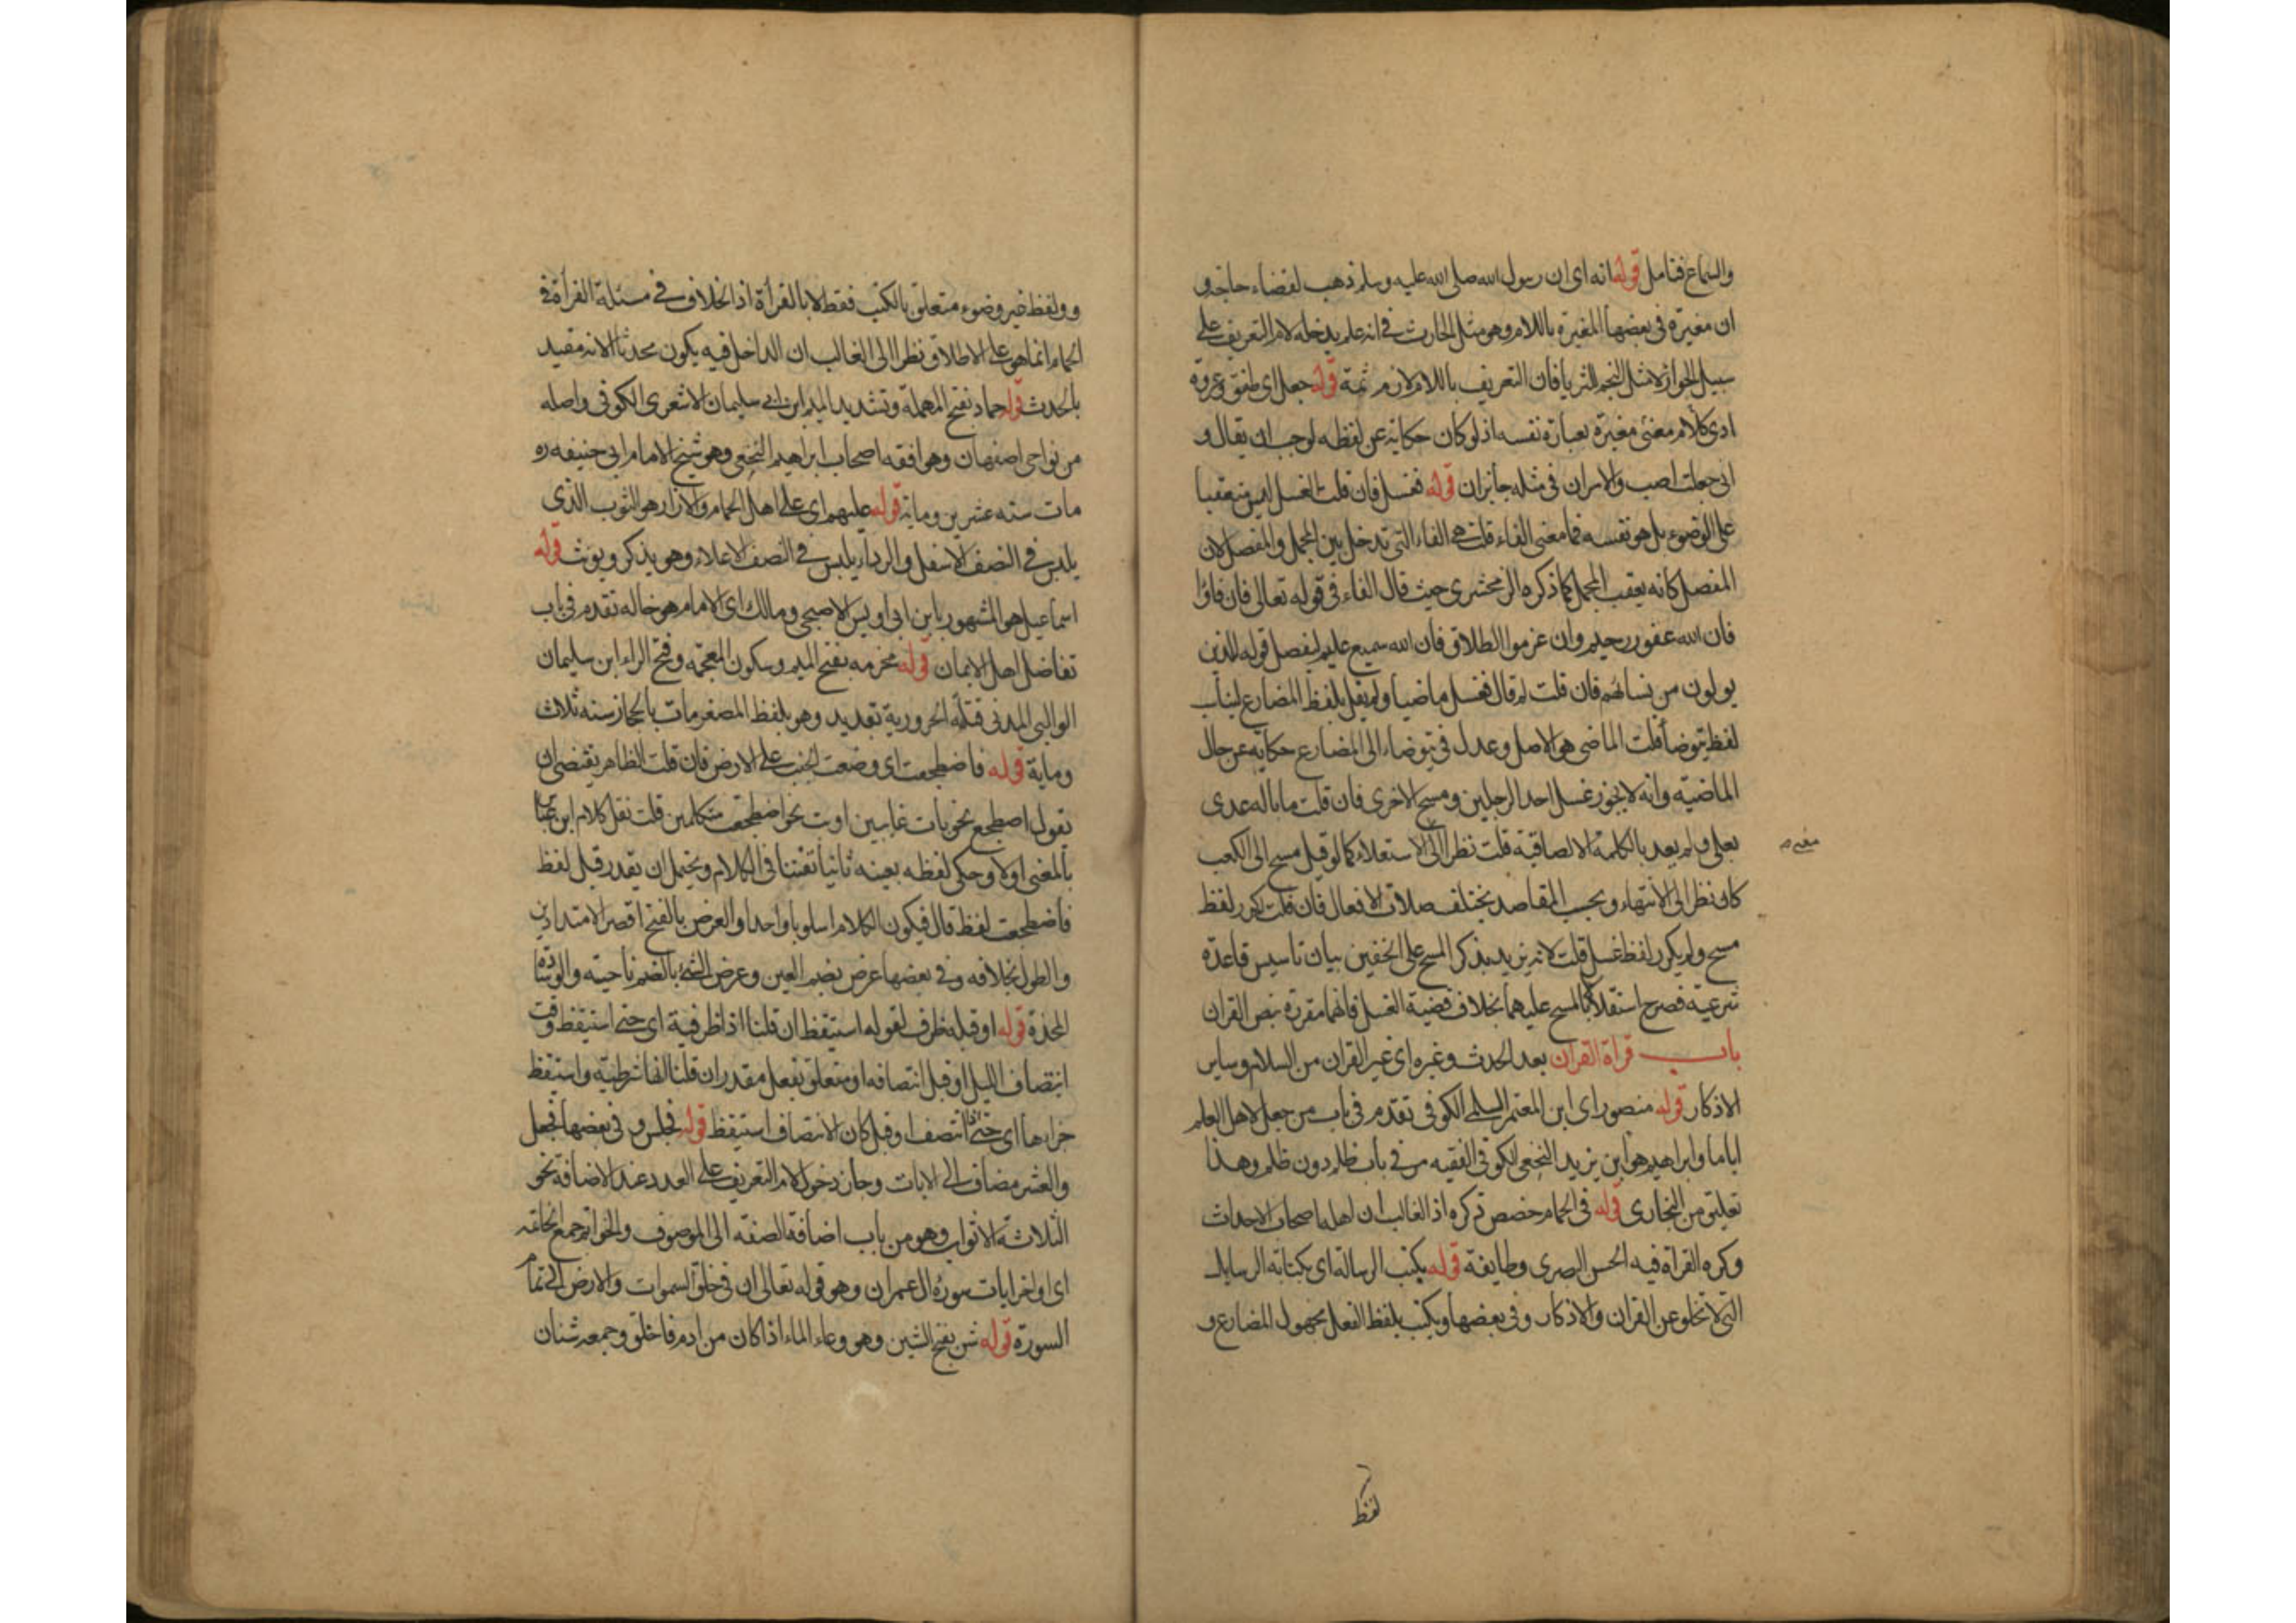 والسماع فتامل قوله انه اى ان رسول الله صلى الله عليه وسلم ذهب لقضاء حاجة و
ان مغيرة فى بعضها المغيرة باللام وهو مثل الحارث فى انه علم يدخله لام التعريف على
سبيل الجواز لا مثل النجم للثريا فان التعريف باللام لازم ثمة قوله جعل اى طفق وعروة
ادى كلام معنى مغيرة بعبارة نفسه اذ لو كان حكاية عن لفظه لوجب ان يقال و
انى جعلت اصب والامران فى مثله جائزان قوله فغسل فان قلت الغسل ليس متعقبا
على الوضوء بل هو نفسه فما معنى الفاء قلت هى الفاء التى تدخل بين المجمل والمفصل لان
المفصل كانه يعقب المجمل كما ذكره الزمخشرى حيث قال الفاء فى قوله تعالى فان فاؤا
فان الله غفور رحيم وان عزموا الطلاق فان الله سميع عليم لتفصل قوله للذين
يولون من نسائهم فان قلت لم قال فغسل ماضيا ولم يقل بلفظ المضارع ليناسب
لفظ يتوضأ قلت الماضى هو الاصل وعدل فى يتوضاء الى المضارع حكاية عن حال
الماضية وانه لا يجوز غسل احد الرجلين ومسح الاخرى فان قلت ما باله عدى
بعلى ولم يعد بالكلمة الالصاقية قلت نظرا الى الاستعلاء كما لو قيل مسح الى الكعب
كان نظرا الى الانتهاء وبحسب المقاصد يختلف صلات الافعال فان قلت كرر لفظ
مسح ولم يكرر لفظ غسل قلت لانه يريد بذكر المسح على الخفين بيان تاسيس قاعدة
شرعية فصرح استقلالا بالمسح عليهما بخلاف قضية الغسل فانها مقررة بنص القران
باب قراة القران بعد الحدث وغيره اى غير القران من السلام وساير
الاذكار قوله منصور اى ابن المعتمر السلمى الكوفى تقدم فى باب من جعل لاهل العلم
اياما وابراهيم هو ابن يزيد النخعى الكوفى الفقيه مر فى باب ظلم دون ظلم وهذا
تعليق من البخارى قوله فى الحمام خصص ذكره اذ الغالب ان اهله اصحاب الاحداث
وكره القراة فيه الحسن البصرى وطايفة قوله بكتب الرسالة اى بكتابة الرسايل
التى لا تخلو عن القران والاذكار وفى بعضها ويكتب بلفظ الفعل مجهول المضارع و
لفظ
و ولفظ غير وضوء متعلق بالكتب فقط لا بالقرأة اذ الخلاف فى مسئلة القرأة فى
الحمام انما هو على الاطلاق نظرا الى الغالب ان الداخل فيه يكون محدثا لا انه مقيد
بالحدث قوله حماد بفتح المهملة وتشديد الميم ابن ابى سليمان الاشعرى الكوفى واصله
من نواحى اصفهان وهو افقه اصحاب ابراهيم النخعى وهو شيخ الامام ابى حنيفه ره
مات سنه عشرين وماية قوله عليهم اى على اهل الحمام والازار هو الثوب الذى
يلبس فى النصف الاسفل والرداء يلبس فى النصف الاعلاء وهو يذكر ويونث قوله
اسماعيل هو المشهور بابن ابى اويس الاصبحى ومالك اى الامام هو خاله تقدم فى باب
تفاضل اهل الايمان قوله مخرمه بفتح الميم وسكون المعجمة وفتح الراء ابن سليمان
الوالبى المدنى قتله الحرورية بقديد وهو بلفظ المصغر مات بالحجاز سنه ثلاث
وماية قوله فاضطجعت اى وضعت الجنب على الارض فان قلت الظاهر يقتضى ان
يقول اضطجع نحو بات غايبين او بت نحو اضطجعت متكلمين قلت نقل كلام ابن عباس
بالمعنى اولا وحكى لفظه بعينه ثانيا تفننا فى الكلام ويحتمل ان يقدر قبل لفظ
فاضطجعت لفظ قال فيكون الكلام اسلوبا واحدا والعرض بالفتح اقصر الامتدادين
والطول بخلافه وفى بعضها عرض بضم العين وعرض الشئ بالضم ناحيته والوسادة
المخدة قوله او قبله ظرف لقوله استيقظ ان قلنا اذا ظرفية اى حتى استيقظ وقت
انتصاف الليل او قبل انتصافه او متعلق بفعل مقدر ان قلنا انها شرطية واستيقظ
جزاءها اى حتى اذا انتصف او قبله كان الانتصاف استيقظ قوله فجلس و فى بعضها فجعل
والعشر مضاف الى الايات وجاز دخول لام التعريف على العدد عند الاضافة نحو
الثلاثة الاثواب وهو من باب اضافة الصفة الى الموصوف والخواتيم جمع الخاتمة
اى اواخر ايات سورة ال عمران وهو قوله تعالى ان فى خلق السموات والارض الى تمام
السورة قوله شن بفتح الشين وهو وعاء الماء اذا كان من ادم فاخلق وجمعه شنان